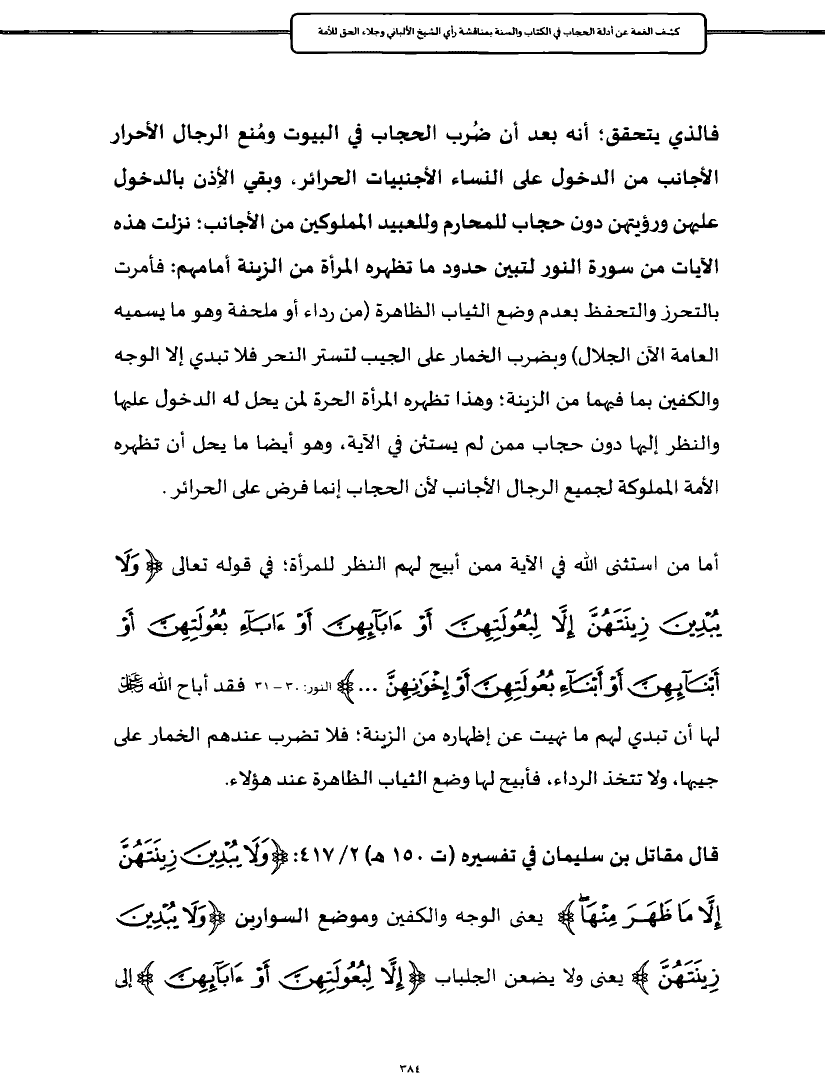 كشف الغمة عن أدلة الحجاب في الكتاب والسنة بمناقشة رأي الشيخ الألباني وجلاء الحق للأمة
فالذي يتحقق؛ أنه بعد أن ضُرب الحجاب في البيوت ومُنع الرجال الأحرار
الأجانب من الدخول على النساء الأجنبيات الحرائر، وبقي الإذن بالدخول
عليهن ورؤيتهن دون حجاب للمحارم وللعبيد المملوكين من الأجانب؛ نزلت هذه
الآيات من سورة النور لتبين حدود ما تظهره المرأة من الزينة أمامهم: فأمرت
بالتحرز والتحفظ بعدم وضع الثياب الظاهرة (من رداء أو ملحفة وهو ما يسميه
العامة الآن الجلال) وبضرب الخمار على الجيب لتستر النحر فلا تبدي إلا الوجه
والكفين بما فيهما من الزينة؛ وهذا تظهره المرأة الحرة لمن يحل له الدخول عليها
والنظر إليها دون حجاب ممن لم يستثن في الآية، وهو أيضا ما يحل أن تظهره
الأمة المملوكة لجميع الرجال الأجانب لأن الحجاب إنما فرض على الحرائر .
أما من استثنى الله في الآية ممن أبيح لهم النظر للمرأة؛ في قوله تعالى ﴿وَلَا
يُبْدِينَ زِينَتَهُنَّ إِلَّا لِبُعُولَتِهِنَّ أَوْ ءَابَآئِهِنَّ أَوْ ءَابَآءِ بُعُولَتِهِنَّ أَوْ
أَبْنَآئِهِنَّ أَوْ أَبْنَآءِ بُعُولَتِهِنَّ أَوْ إِخْوَٰنِهِنَّ ... ﴾ النور: ٣٠ – ٣١ فقد أباح الله ﷻ
لها أن تبدي لهم ما نهيت عن إظهاره من الزينة؛ فلا تضرب عندهم الخمار على
جيبها، ولا تتخذ الرداء، فأبيح لها وضع الثياب الظاهرة عند هؤلاء.
قال مقاتل بن سليمان في تفسيره (ت ١٥٠ هـ) ٢/ ٤١٧: ﴿وَلَا يُبْدِينَ زِينَتَهُنَّ
إِلَّا مَا ظَهَرَ مِنْهَا ﴾ يعنى الوجه والكفين وموضع السوارين ﴿وَلَا يُبْدِينَ
زِينَتَهُنَّ ﴾ يعنى ولا يضعن الجلباب ﴿إِلَّا لِبُعُولَتِهِنَّ أَوْ ءَابَآئِهِنَّ ﴾ إلى
٣٨٤